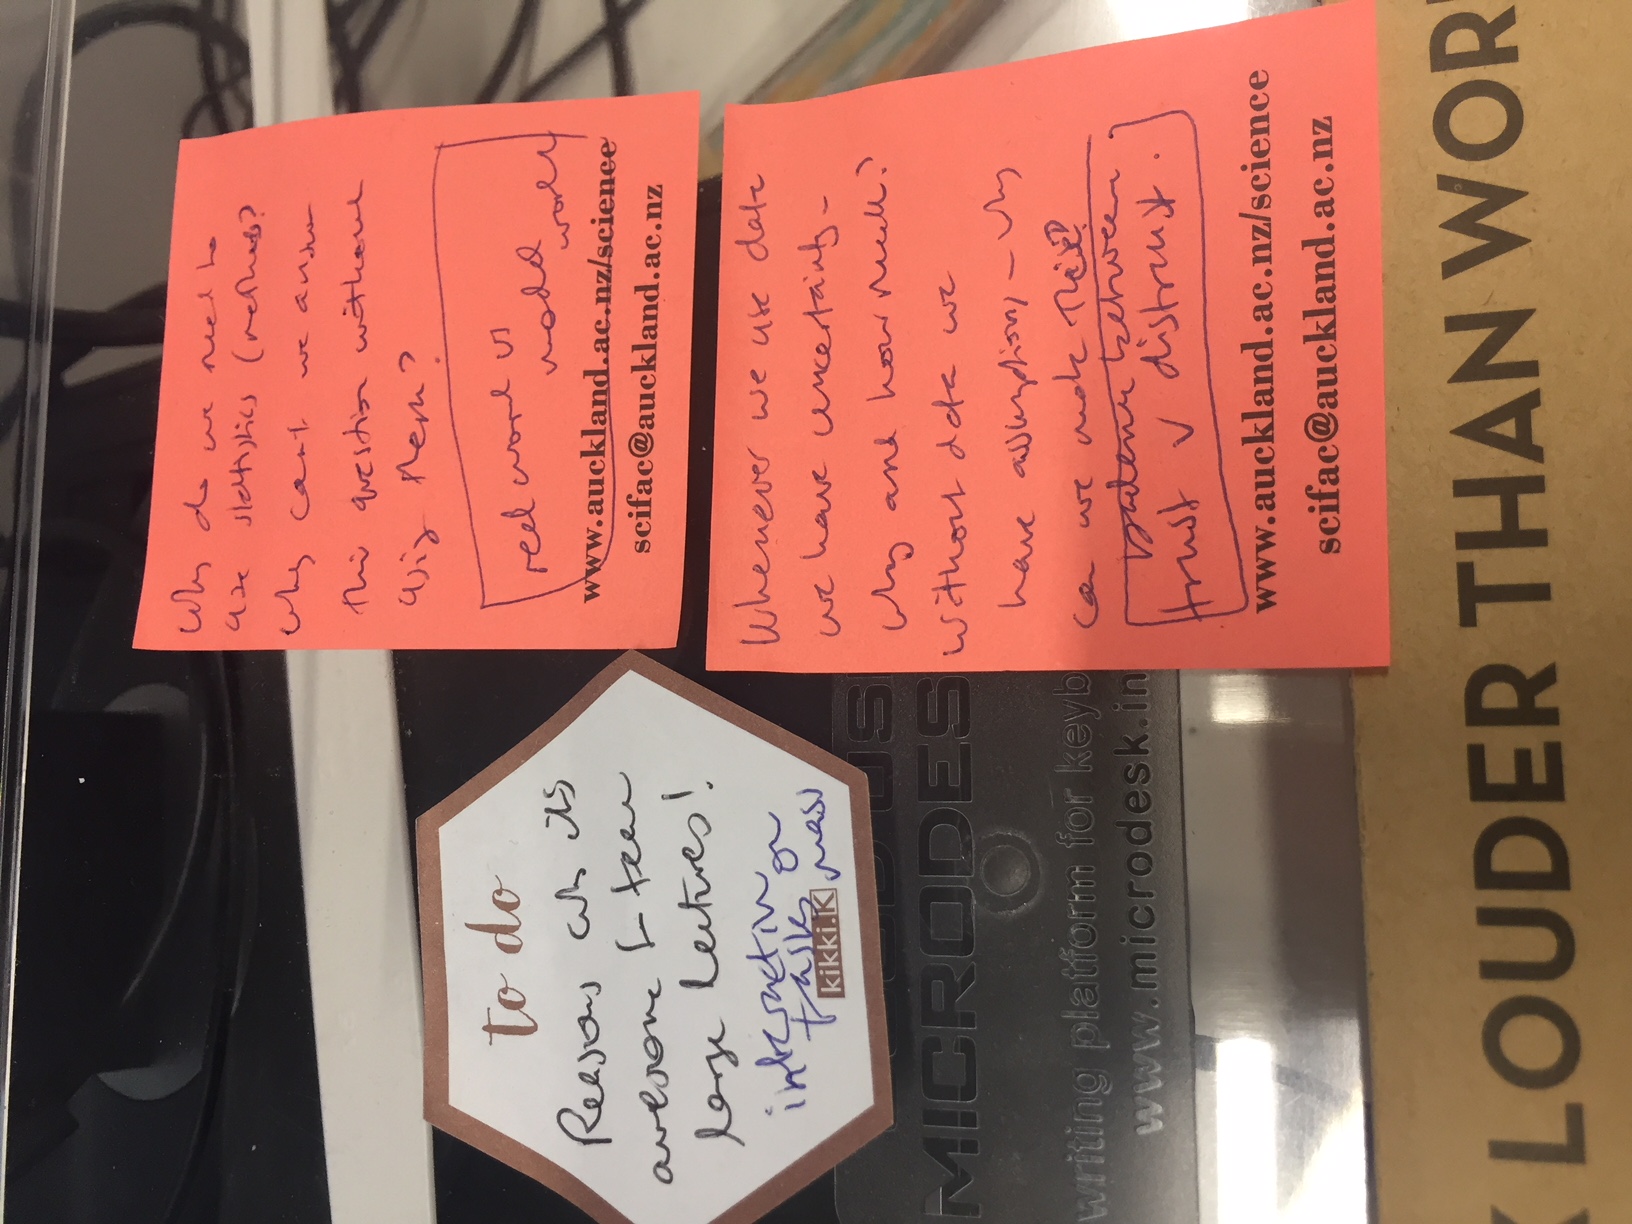 to do
Reasons why its
awesome to teach
large lectures!
interactive
tasks on
mass
kikki.K
Why do we need to
use statistics (methods?
Why can't we answer
this question without
using them?
real world vs
model world
www.auckland.ac.nz/science
scifac@auckland.ac.nz
Whenever we use data
we have uncertainty -
why and how much?
Without data we
have assumptions - why
can we make this?
balance between
trust v distrust.
www.auckland.ac.nz/science
scifac@auckland.ac.nz
MICRODES
writing platform for keyb
www.microdesk.in
LOUDER THAN WOR